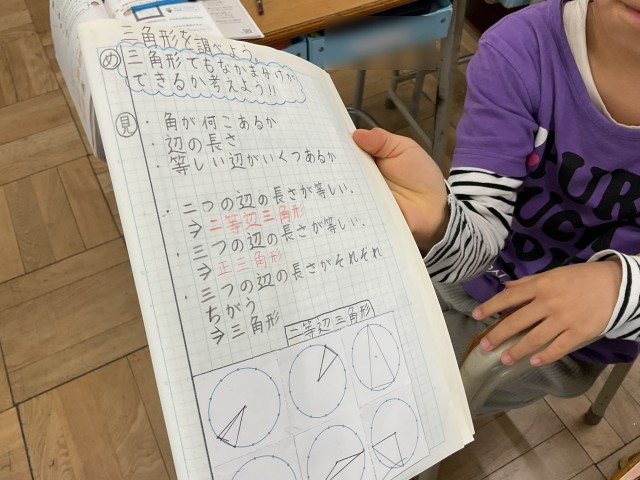 三角形を調べよう。
め 三角形でもなかま分けが
できるか考えよう!!
見 ・角が何こあるか
・辺の長さ
・等しい辺がいくつあるか
・二つの辺の長さが等しい。
⇒二等辺三角形
・三つの辺の長さが等しい。
⇒正三角形
・三つの辺の長さがそれぞれ
ちがう
⇒三角形
二等辺三角形